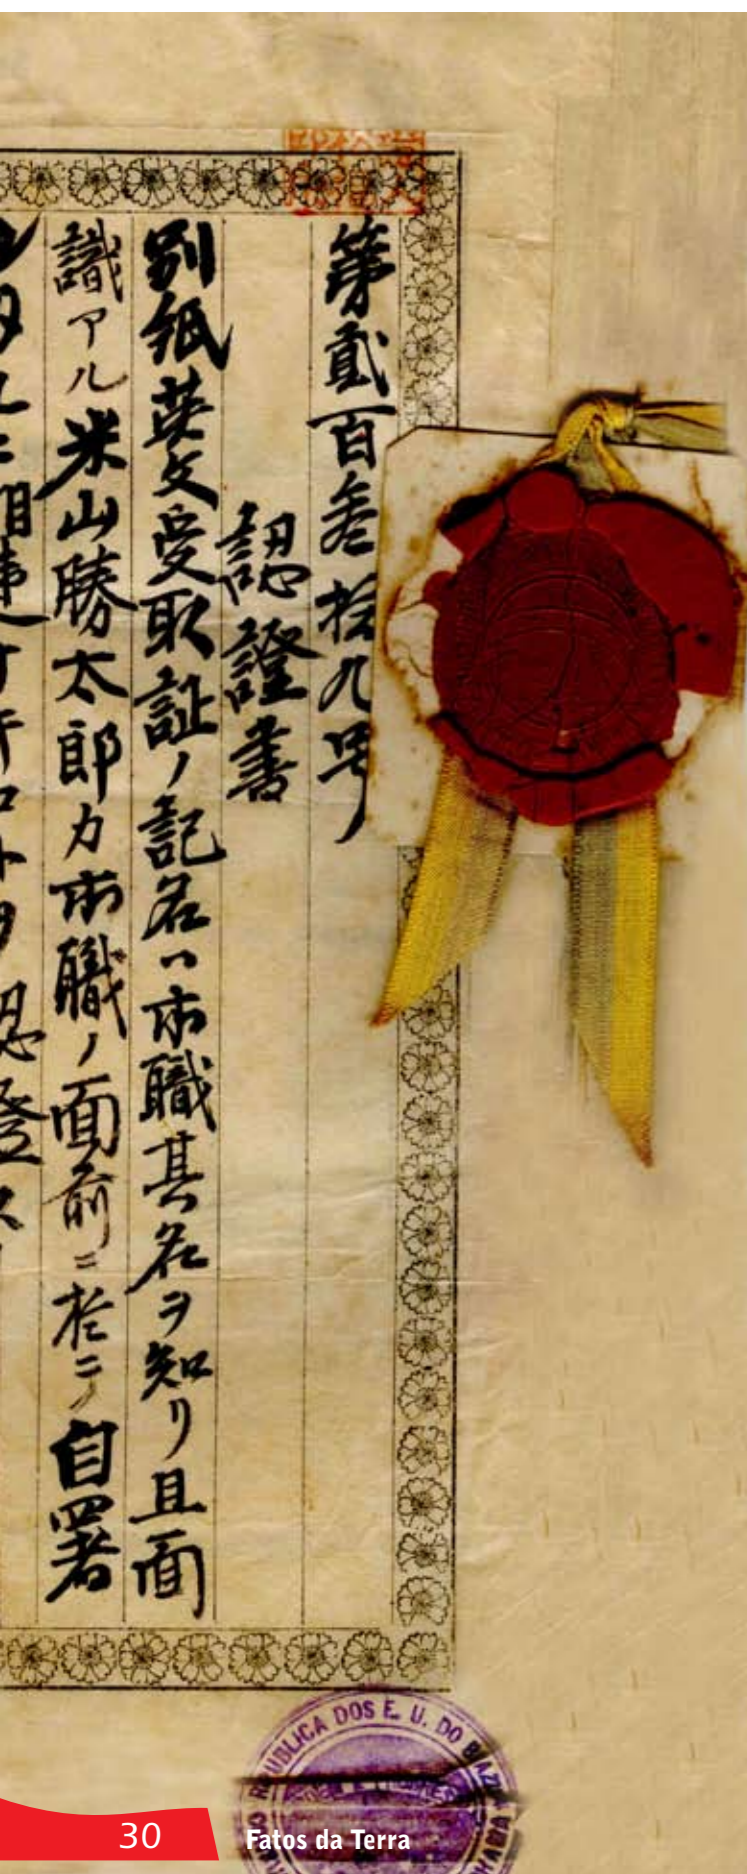 第貳百参拾九号
認證書
別紙英文受取証ノ記名ハ本職其名ヲ知リ且面
識アル米山勝太郎カ本職ノ面前ニ於テ自署
REPUBLICA DOS E. U. DO BRAZIL
30
Fatos da Terra